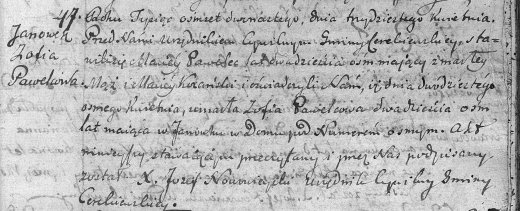 47.
Janowek
Zofia
Pawełcowa
Roku Tysiąc osmset dwunastego, dnia trzydziestego Kwietnia.
Przed Nami Urzędnikiem Cywilnym Gminy Cerekwickiey, sta-
Maciey Pawelec lat dwadzieścia osm maiący zmarłey
Mąż i Maciey i oświadczyli Nam, iż dnia dwudziestego
osmego Kwietnia, umarła Zofia Pawelcowa dwadzieścia osm
lat maiąca w Janowku w domu pod Numerem osmym. Akt
ninieyszy stawaiącym przeczytany i przez Nas podpisany
został X. Jozef Urzędnik Cywilny Gminy
Cerekwickiey.